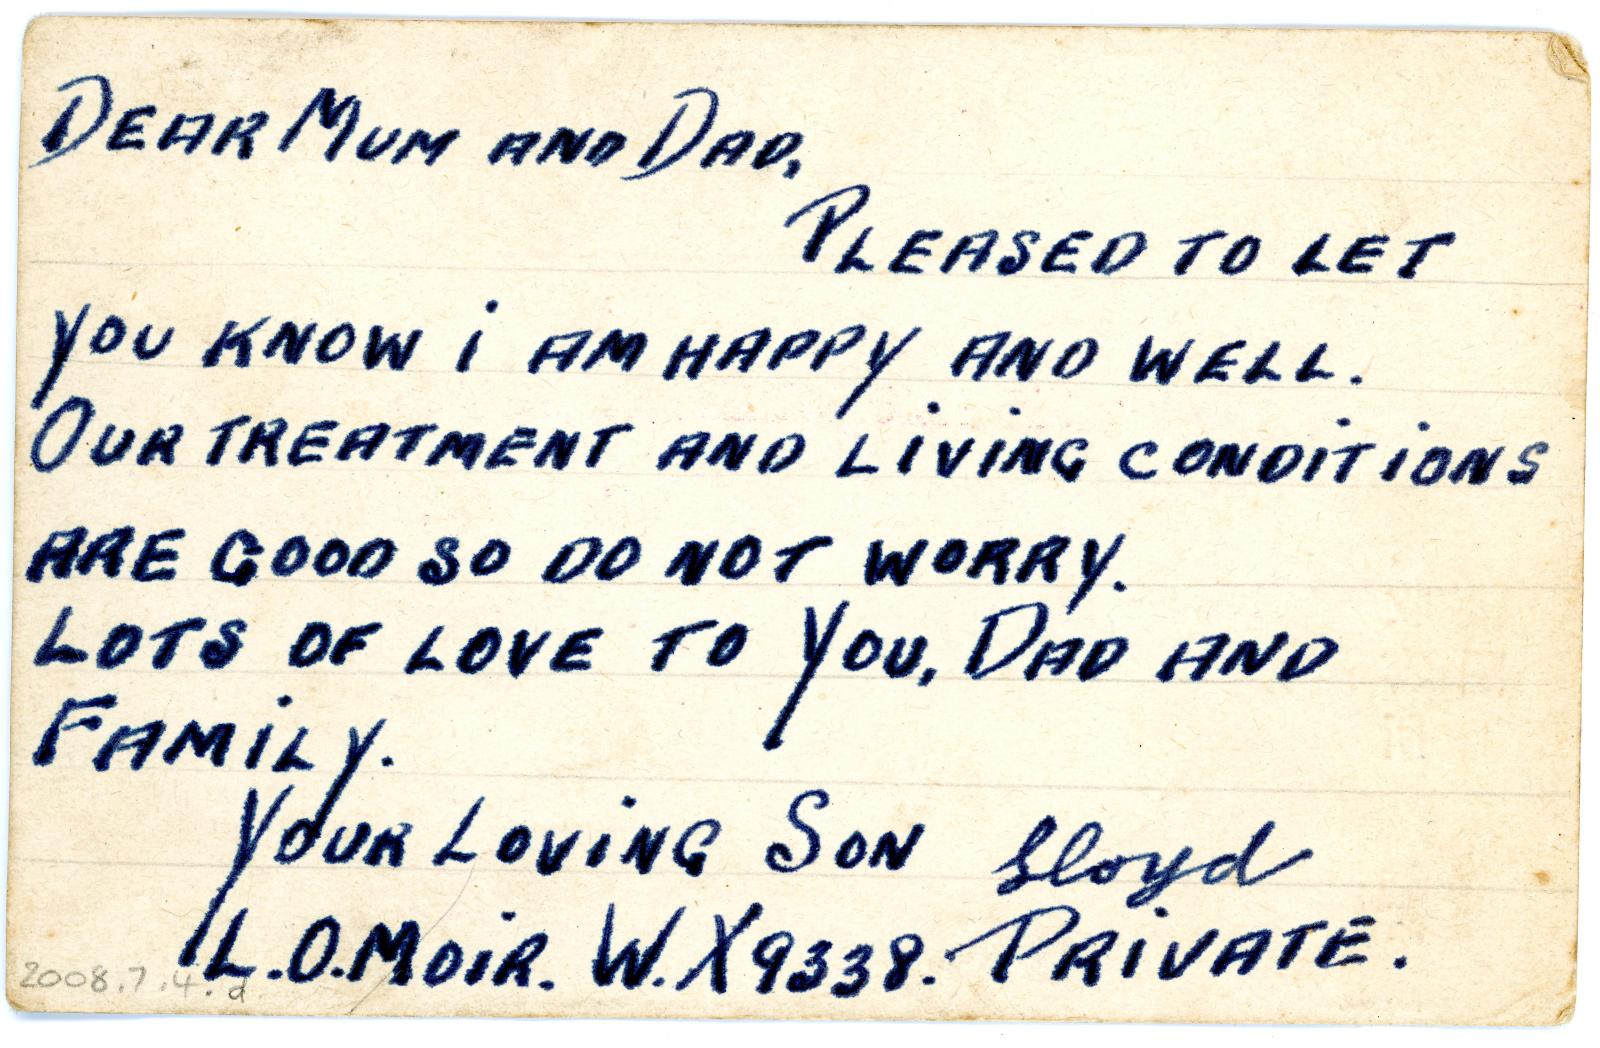 DEAR MUM AND DAD,
PLEASED TO LET
YOU KNOW i AM HAPPY AND WELL.
OUR TREATMENT AND LiViNG CONDiTiONS
ARE GOOD SO DO NOT WORRY.
LOTS OF LOVE TO YOU, DAD AND
FAMiLY.
YOUR LOViNG SON Lloyd
L.O.MOiR. W.X9338. PRiVATE.
2008.7.4.a